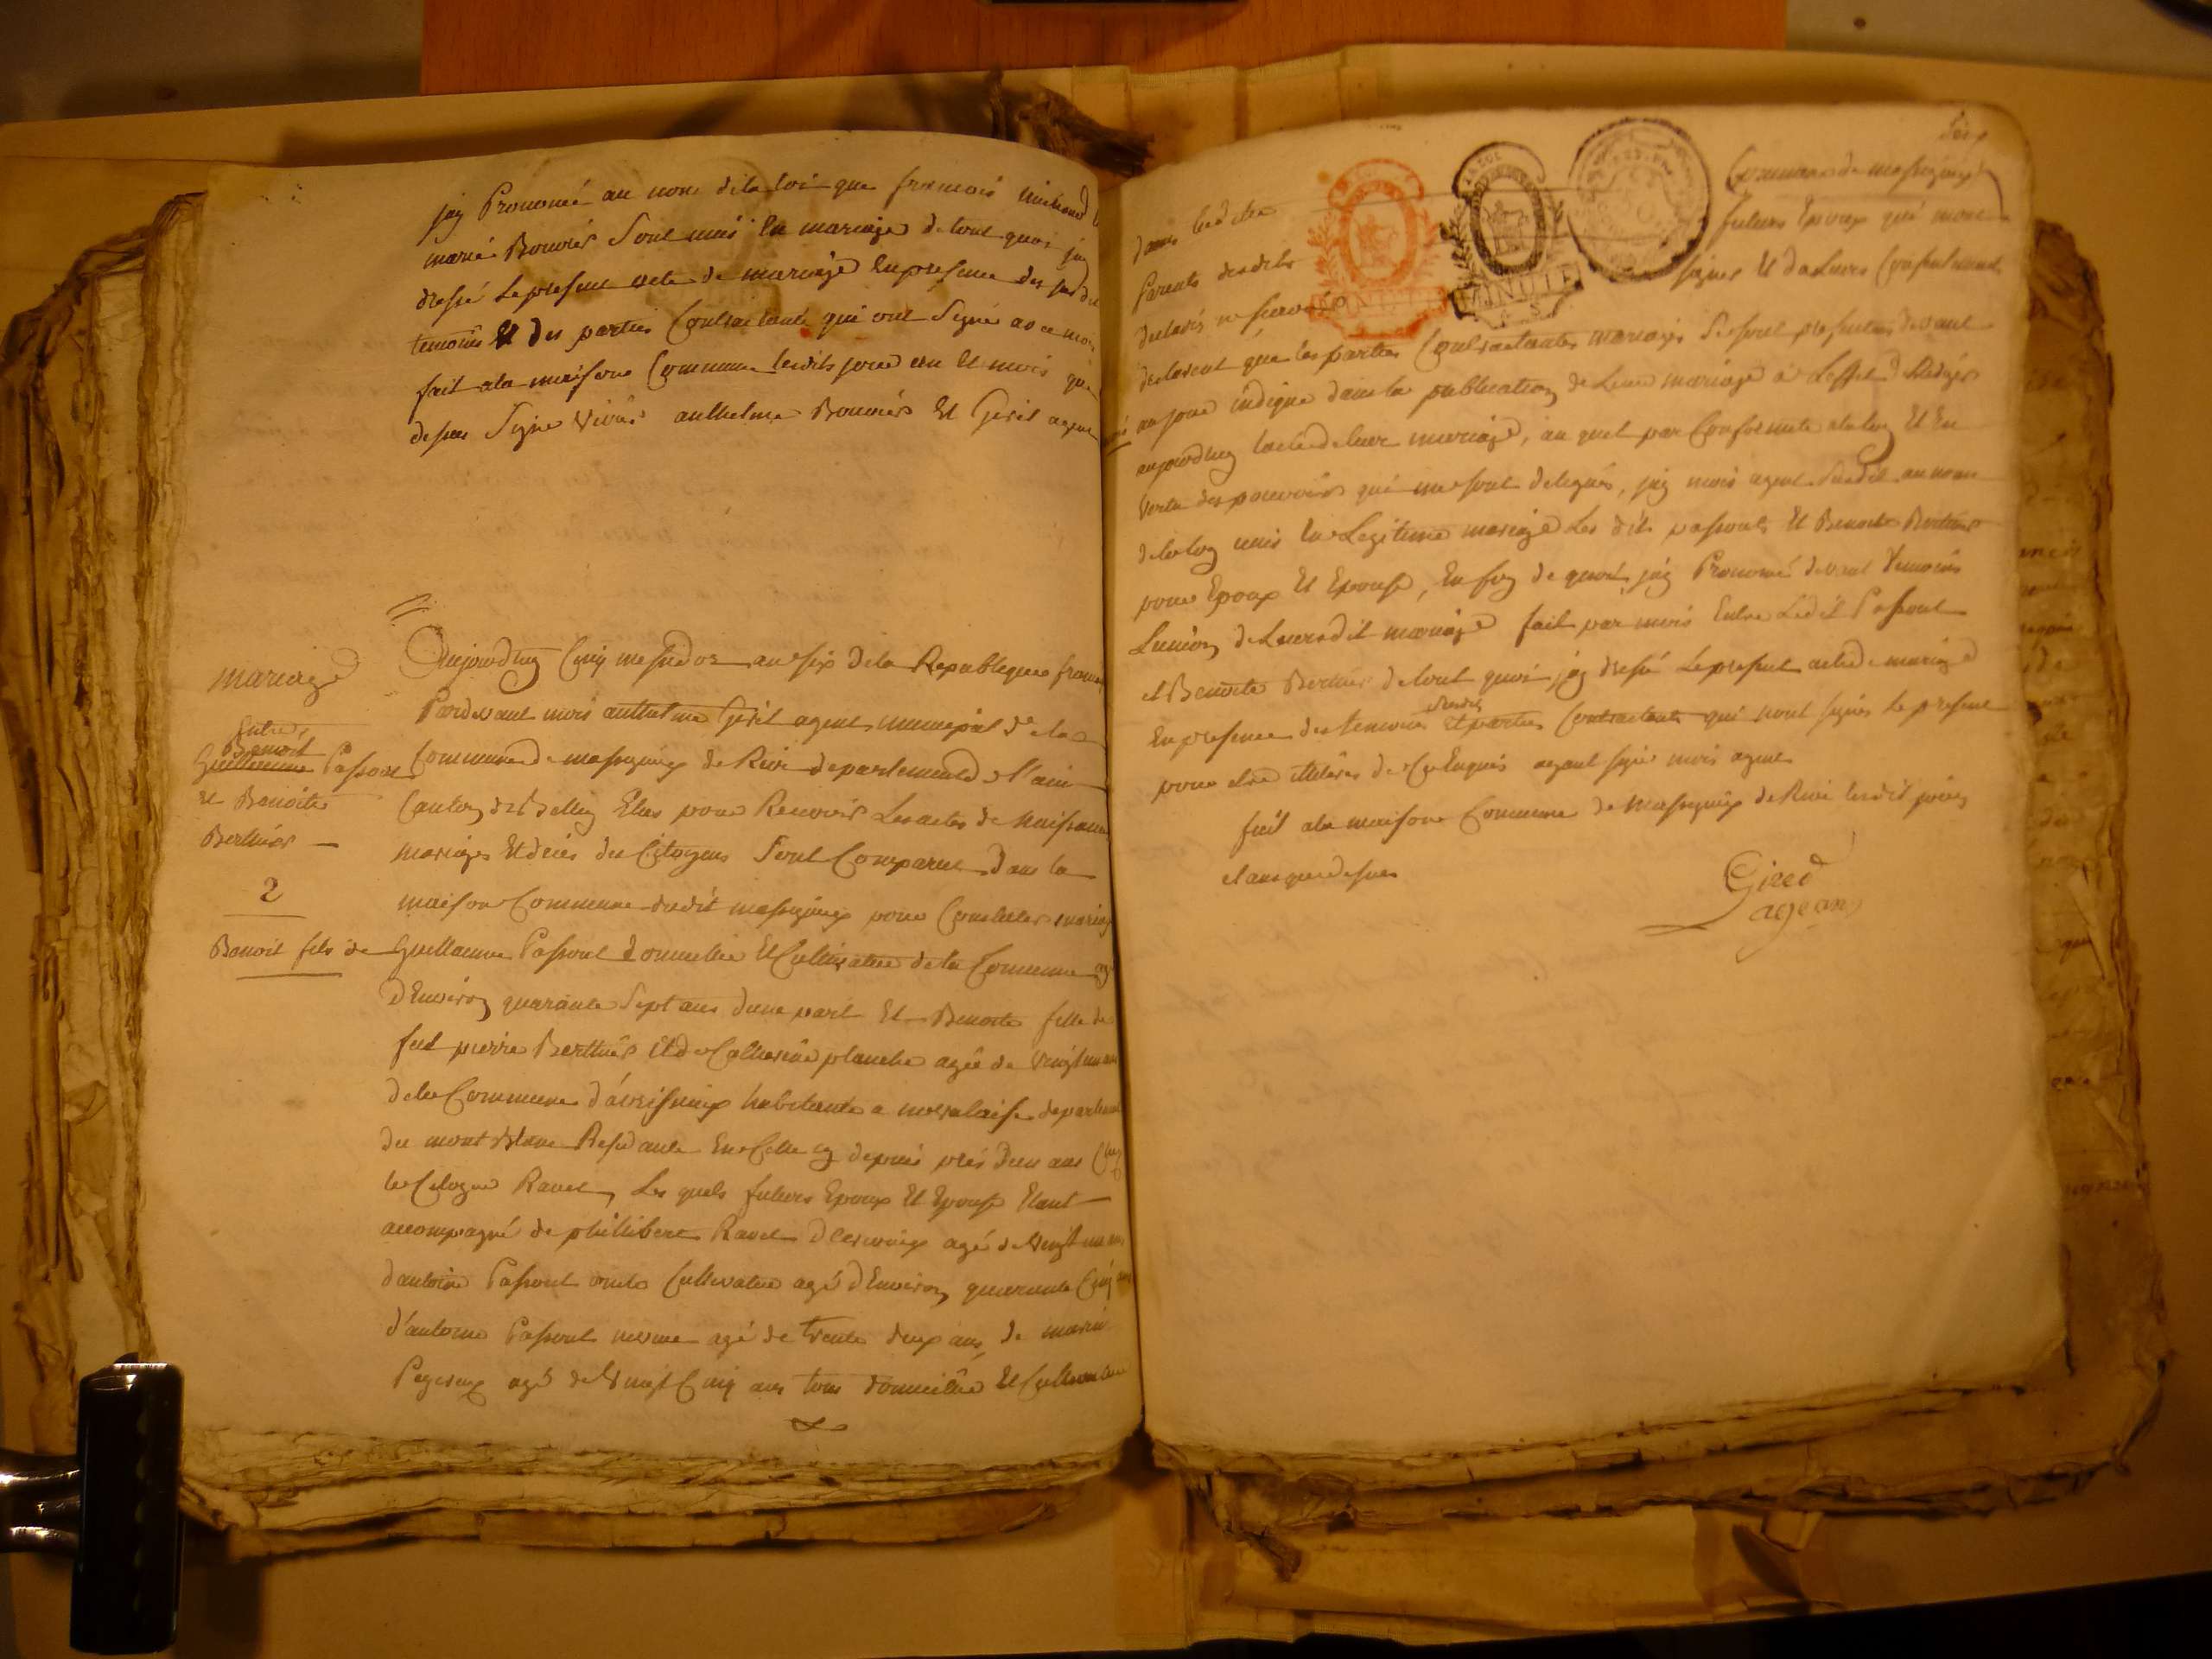 jay Prononcé au nom dela loi que francois
marie Bouvier Sont unis En mariage de tout quoi jay
dressé Le present acte de mariage En presence des susdit
temoins Et des parties Contractante qui ont Signé avec moi
fait ala maisone Commune lesdits jour an Et mois que
dessus Signé anthelme Bouvier Et Giril agent
mariage
Entre
Benoit
Guillaume Passout
et Benoite
Berthier
2
Benoit fils de
Aujourdhuy Cinq messidor an Six dela Republique
Pardevant moi anthelme Giril agent municipal de la
Commune de massigniux de Rive departement de l'ain
Canton de Belley Elus pour Recevoir Les actes de Naissance
mariages Et decès des Citoyens Sont Comparut dans la
maison Commune dudit massignieux pour Constater mariage
Guillaume Passout domicillié Et Cultivateur de la Commune agé
d'Environ quarante Sept ans dune part Et Benoite fille de
feu pierre Berthier Et de Catherine planche agée de vingt un
dela Commune d'avressieux habitante a novalaise departement
du mont Blanc Residante En Celle cy depuis près d'un ans Chez
le Citoyen Ravet, Les quels futurs Epoux Et Epouse Etant
accompagné de phillibert Ravet agé de vingt un ans
d'antoine Passout oncle Cultivateur agé d'Environ quarante Cinq ans
d'antoine Passout neveu agé de trente deux ans, de marin
agé de vingt Cinq ans tous domicilié Et Cultivateur
Six
dans ledite Commune de massignieux
Parents desdits futurs Epoux qui mont
declarés ne scavoir signer Et dailleurs
declarent que les parties Contractantes mariages Se sont presentes devant
au jour indique dans la publication de Leur mariage à Leffet de Rediger
aujourdhuy lacte de leur mariage, au quel par Conformité ala loy Et En
vertu des pouvoirs qui me sont delegués, jay moi agent Susdit au nom
dela loy unis En Legitime mariage Les dits passout Et Benoite Berthier
pour Epoux Et Epouse, En foy de quoi jay Prononcé devant temoins
Lunion de Leursdit mariage fait par moi Entre Ledit Passout
et Benoite Berthier de tout quoi jay dressé Le present acte de mariage
En presence des temoins susdits Et parties Contractante qui nont signés Le present
pour etre illiteres de Ce Enquis ayant signé moi agent
fait ala maisone Commune de Massignieux de Rive lesdit jour
et an que dessus
MINUTE
MINUTE
Gired
agean